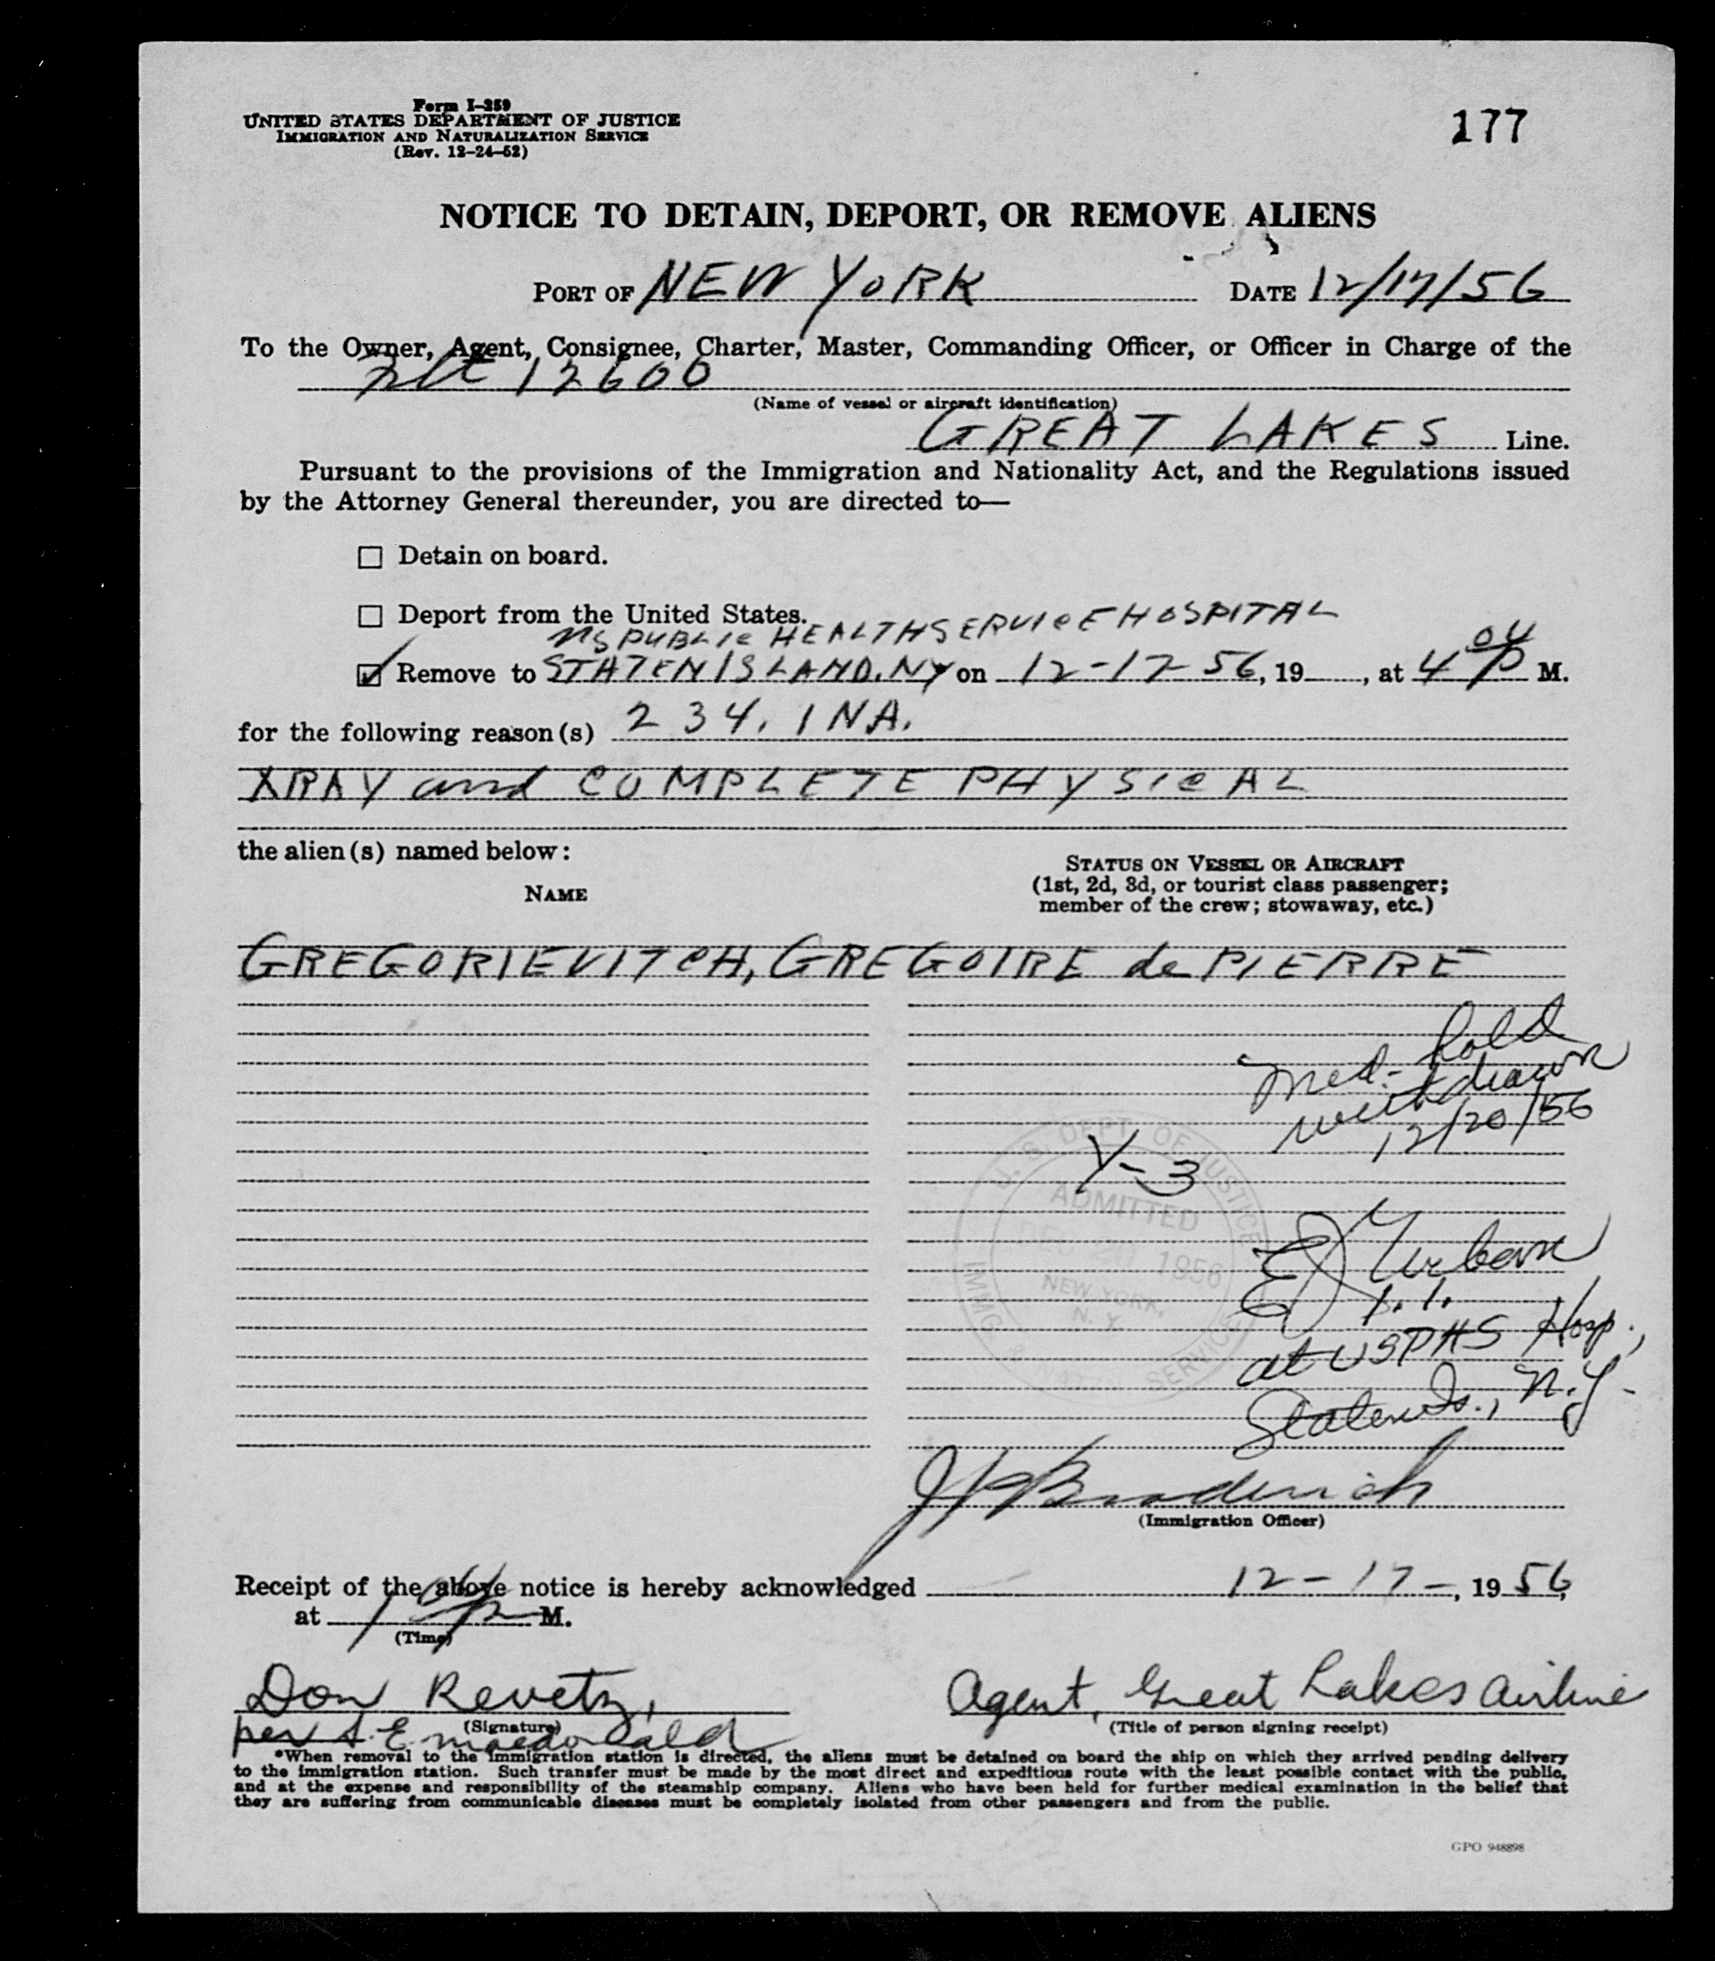 Form I-259
UNITED STATES DEPARTMENT OF JUSTICE
IMMIGRATION AND NATURALIZATION SERVICE
(Rev. 12-24-52)
177
NOTICE TO DETAIN, DEPORT, OR REMOVE ALIENS
PORT OF NEW YORK DATE 12/17/56
To the Owner, Agent, Consignee, Charter, Master, Commanding Officer, or Officer in Charge of the
flt 12600
(Name of vessel or aircraft identification)
GREAT LAKES Line.
Pursuant to the provisions of the Immigration and Nationality Act, and the Regulations issued
by the Attorney General thereunder, you are directed to—
☐ Detain on board.
☐ Deport from the United States.
US PUBLIC HEALTH SERVICE HOSPITAL
☑ Remove to STATEN ISLAND, NY on 12-17-56, 19, at 4 04 P M.
for the following reason(s) 234. INA.
XRAY and COMPLETE PHYSICAL
the alien(s) named below:
NAME
STATUS ON VESSEL OR AIRCRAFT
(1st, 2d, 3d, or tourist class passenger;
member of the crew; stowaway, etc.)
GREGORIEVITCH, GREGOIRE de PIERRE
Med. hold
withdrawn
12/20/56
Y-3
U. S. DEPT. OF JUSTICE
ADMITTED
DEC 20 1956
NEW YORK,
N. Y.
IMMIG. & NATZ. SERVICE
E J Urban
I.I.
at USPHS Hosp.,
Staten Is., N.Y.
J P Broderick
(Immigration Officer)
Receipt of the above notice is hereby acknowledged 12-17-, 1956,
at 1 P M.
(Time)
Don Revetz,
Agent, Great Lakes Airline
(Signature)
(Title of person signing receipt)
per S. E. Macdonald
*When removal to the immigration station is directed, the aliens must be detained on board the ship on which they arrived pending delivery
to the immigration station. Such transfer must be made by the most direct and expeditious route with the least possible contact with the public,
and at the expense and responsibility of the steamship company. Aliens who have been held for further medical examination in the belief that
they are suffering from communicable diseases must be completely isolated from other passengers and from the public.
GPO 948898